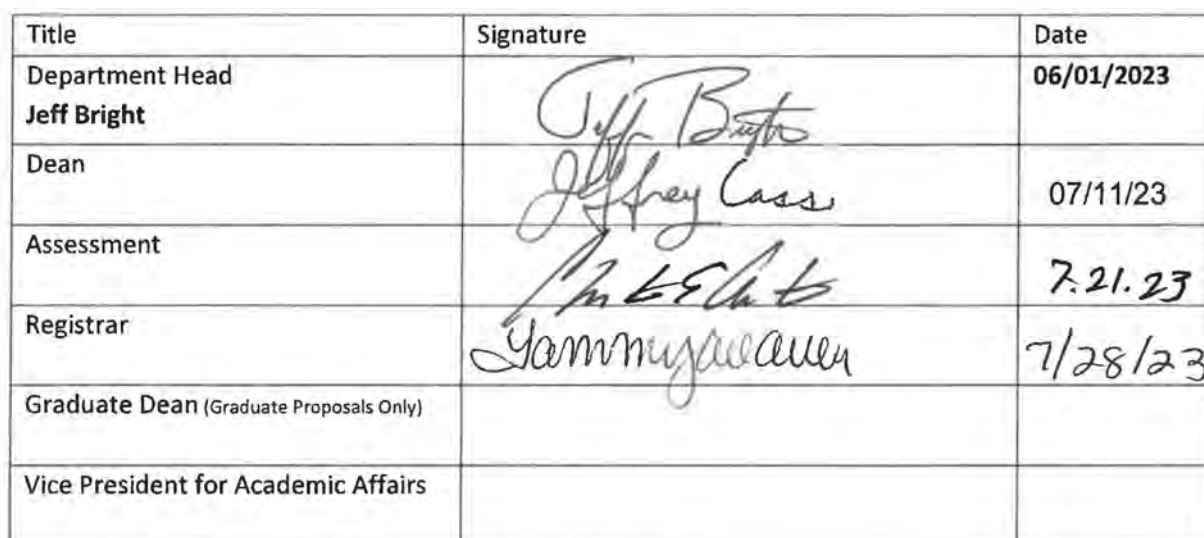 Title Signature Date
Department Head 06/01/2023
Jeff Bright Jeff Bright
Dean Jeffrey Cass 07/11/23
Assessment 7.21.23
Registrar 7/28/23
Graduate Dean (Graduate Proposals Only)
Vice President for Academic Affairs